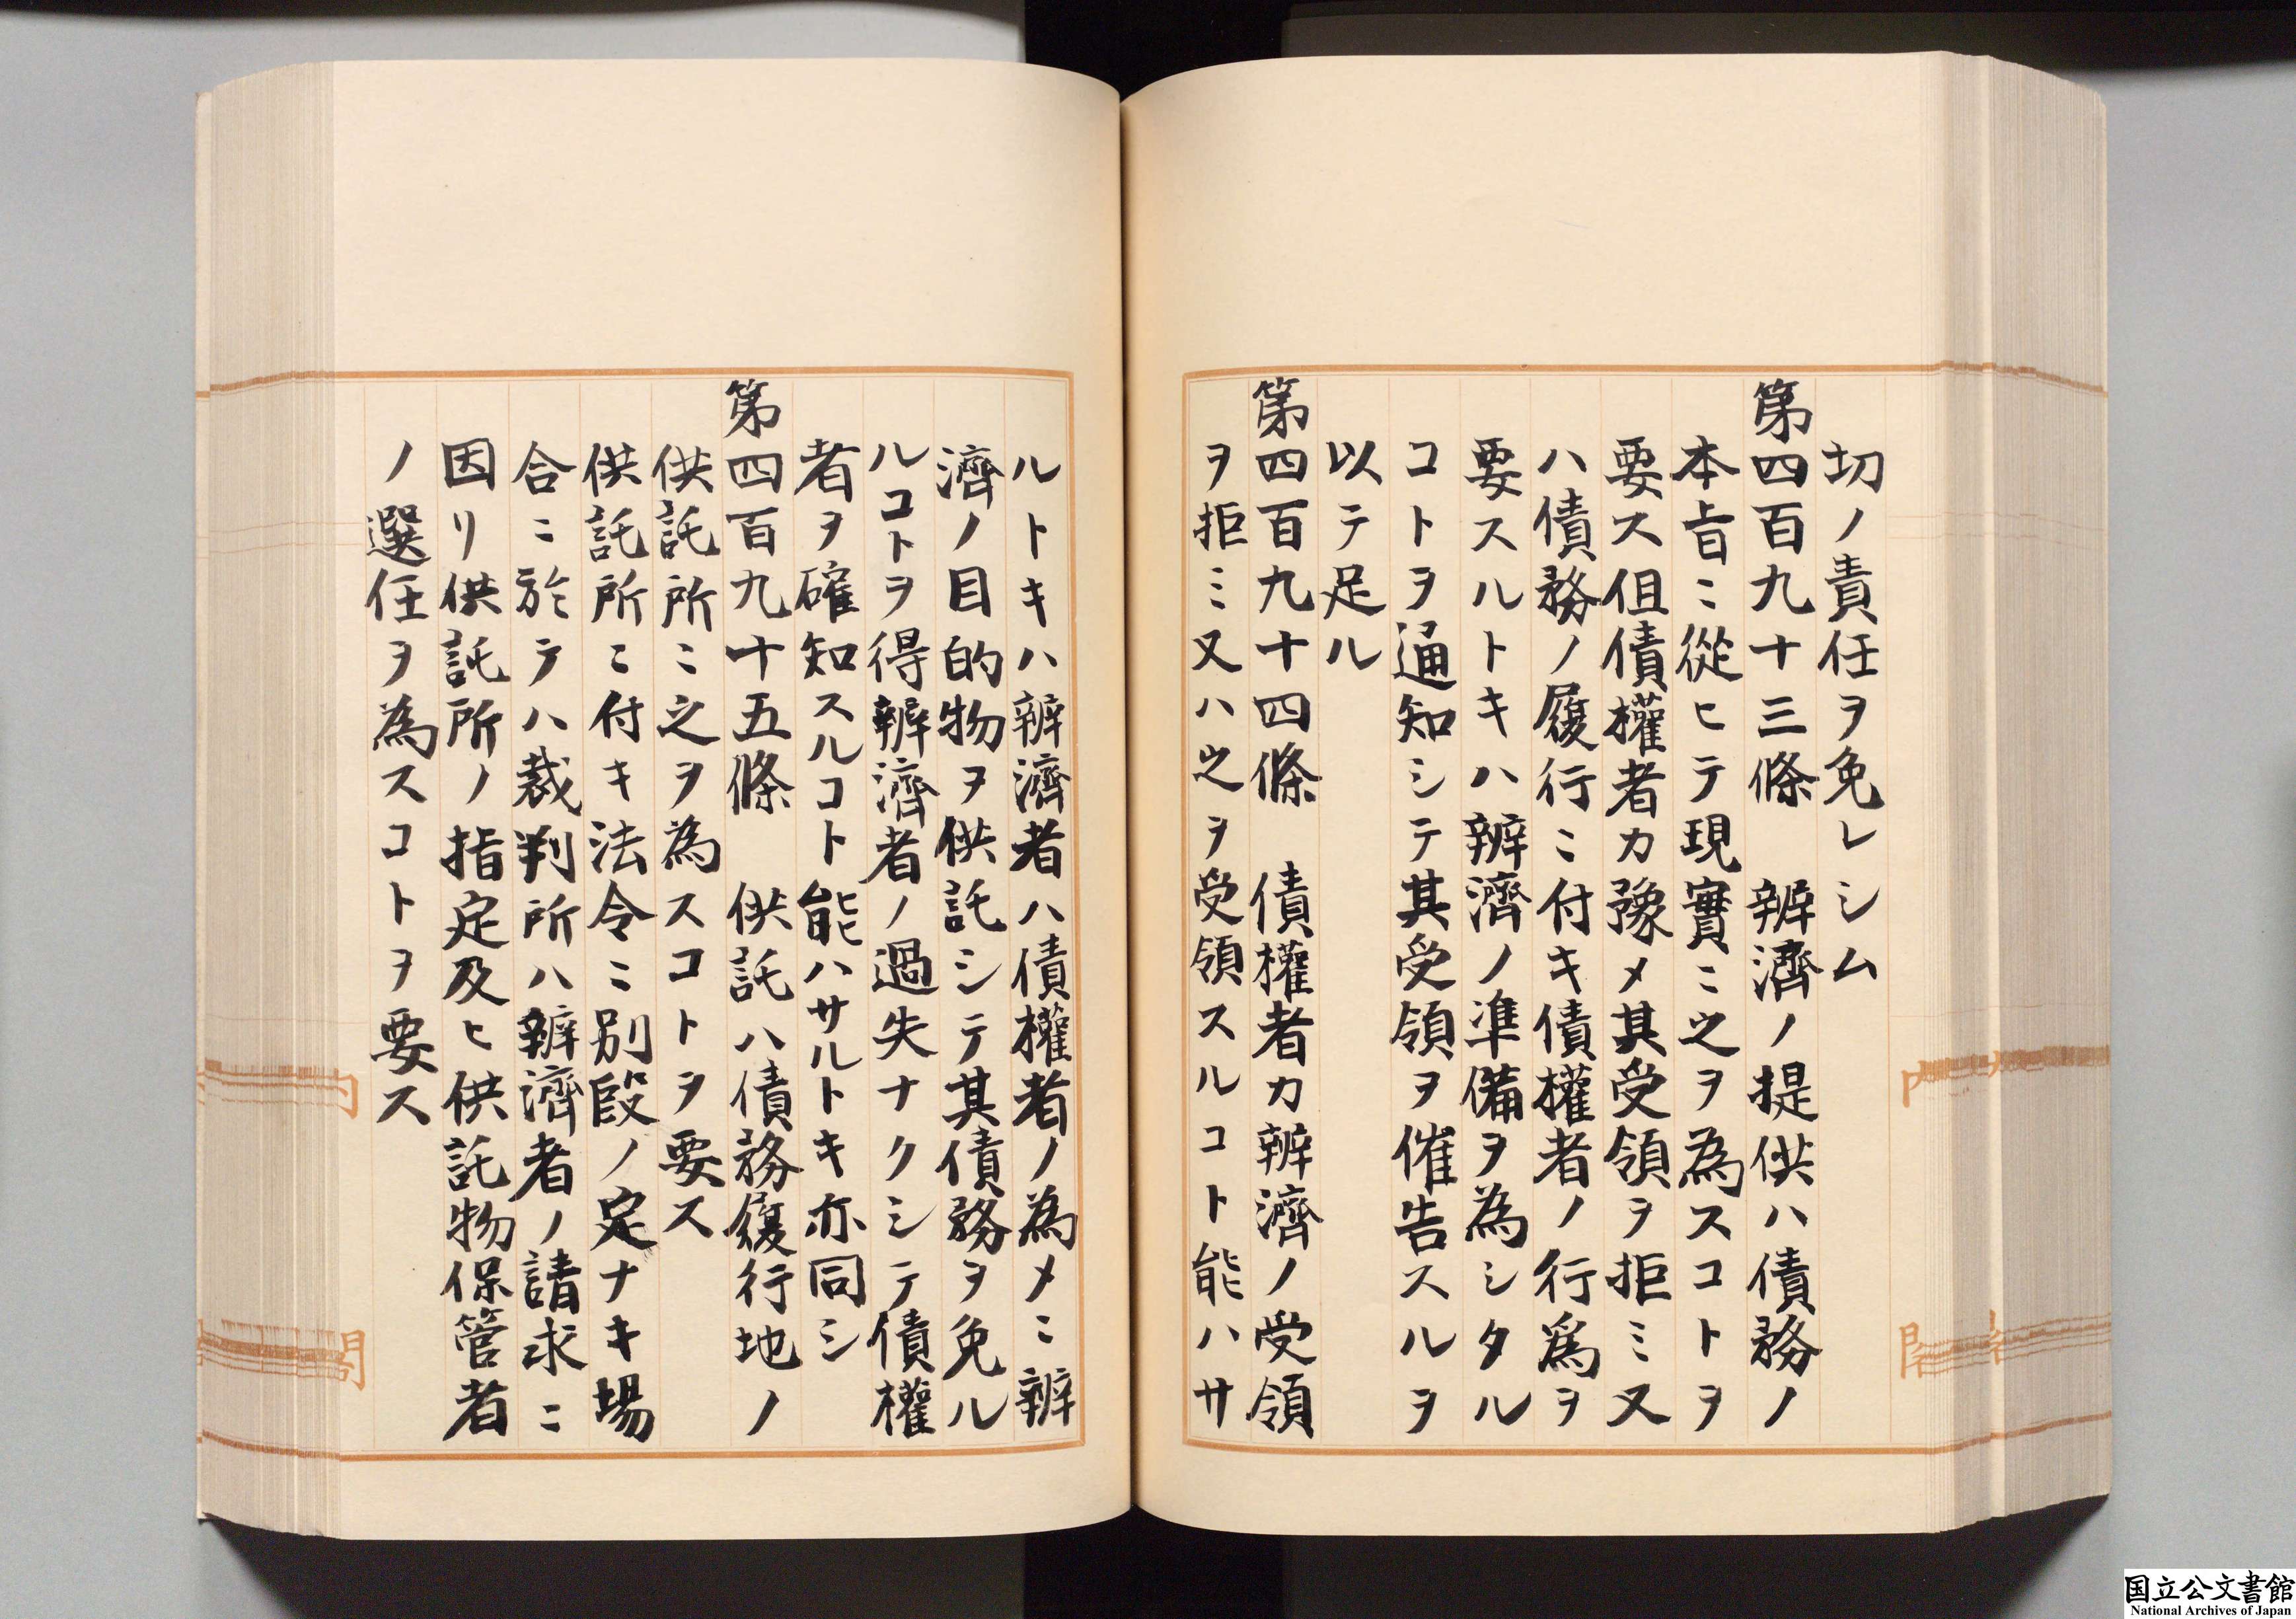 切ノ責任ヲ免レシム
第四百九十三條　辨濟ノ提供ハ債務ノ
本旨ニ從ヒテ現實ニ之ヲ為スコトヲ
要ス但債權者カ豫メ其受領ヲ拒ミ又
ハ債務ノ履行ニ付キ債權者ノ行爲ヲ
要スルトキハ辨濟ノ準備ヲ為シタル
コトヲ通知シテ其受領ヲ催告スルヲ
以テ足ル
第四百九十四條　債權者カ辨濟ノ受領
ヲ拒ミ又ハ之ヲ受領スルコト能ハサ
ルトキハ辨濟者ハ債權者ノ為メニ辨
濟ノ目的物ヲ供託シテ其債務ヲ免ル
ルコトヲ得辨濟者ノ過失ナクシテ債權
者ヲ確知スルコト能ハサルトキ亦同シ
第四百九十五條　供託ハ債務履行地ノ
供託所ニ之ヲ為スコトヲ要ス
供託所ニ付キ法令ニ別段ノ定ナキ場
合ニ於テハ裁判所ハ辨濟者ノ請求ニ
因リ供託所ノ指定及ヒ供託物保管者
ノ選任ヲ為スコトヲ要ス
国立公文書館
National Archives of Japan